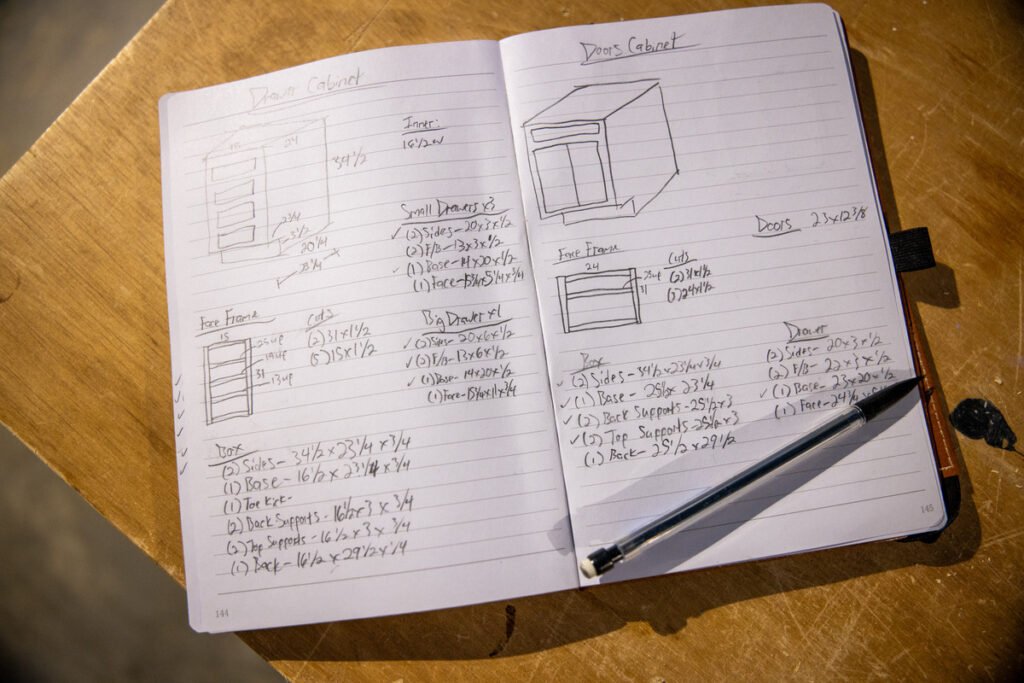 Drawer Cabinet
18
24
34 1/2
2 3/4
3 1/2
20 1/4
23 1/4
Inner:
16 1/2 w
Small Drawers x3
(2) Sides - 20 x 3 x 1/2
(2) F/B - 13 x 3 x 1/2
(1) Base - 14 x 20 x 1/2
(1) Face - 15 3/4 x 5 1/4 x 3/4
Face Frame
15
31
Cuts
(2) 31 x 1 1/2
(5) 15 x 1 1/2
Big Drawer x1
(2) Sides - 20 x 6 x 1/2
(2) F/B - 13 x 6 x 1/2
(1) Base - 14 x 20 x 1/2
(1) Face - 15 3/4 x 11 x 3/4
Box
(2) Sides - 34 1/2 x 23 1/4 x 3/4
(1) Base - 16 1/2 x 23 1/4 x 3/4
(1) Toe Kick -
(2) Back Supports - 16 1/2 x 3 x 3/4
(2) Top Supports - 16 1/2 x 3 x 3/4
(1) Back - 16 1/2 x 29 1/2 x 1/4
144
Doors Cabinet
Doors 23 x 12 3/8
Face Frame
24
31
Cuts
(2) 31 x 1 1/2
(3) 24 x 1 1/2
Box
(2) Sides - 34 1/2 x 23 1/4 x 3/4
(1) Base - 25 1/2 x 23 1/4
(2) Back Supports - 25 1/2 x 3
(2) Top Supports - 25 1/2 x 3
(1) Back - 25 1/2 x 29 1/2
Drawer
(2) Sides - 20 x 3 x 1/2
(2) F/B - 22 x 3 x 1/2
(1) Base - 23 x 20 x 1/2
(1) Face - 24 3/4 x
145